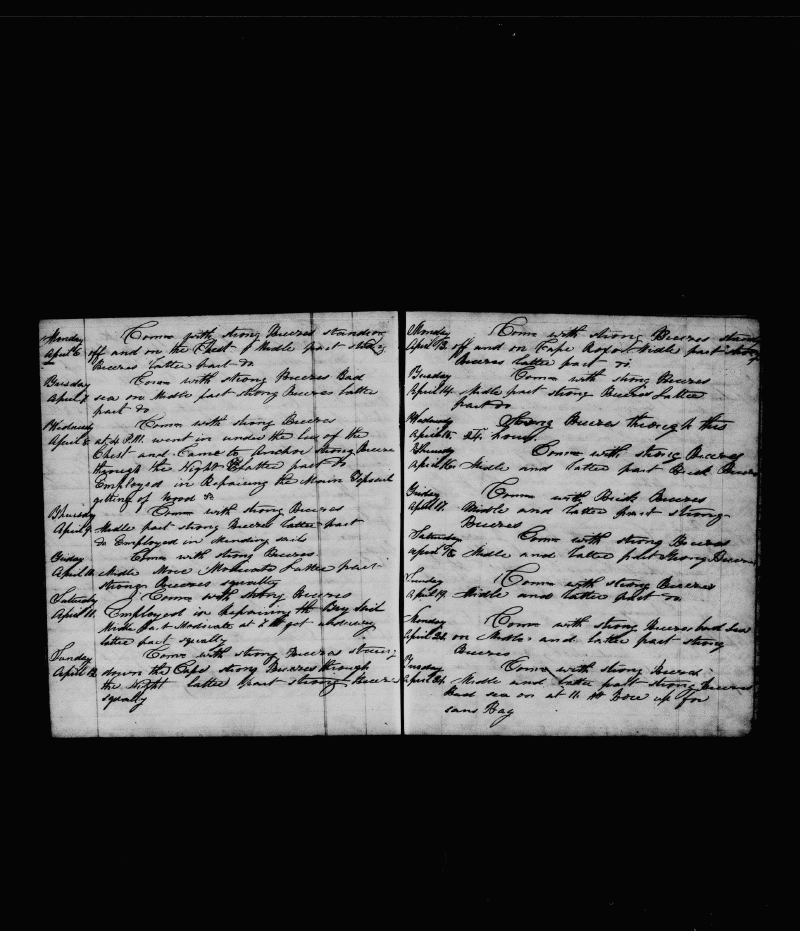 Monday Comes with strong Breezes standing
April 6 off and on the Chest Middle part strong
Breezes latter part do
Tuesday Comes with strong Breezes Bad
April 7 sea on Middle part strong Breezes latter
part do
Wednesday Comes with strong Breezes
April 8 at 4 P.M. went in under the lee of the
Chest and Came to Anchor strong Breeze
through the Night latter part do
Employed in Repairing the Main Topsail
getting of wood &c
Thursday Comes with strong Breezes
April 9 Middle part strong Breezes latter part
do Employed in Mending sails
Friday Comes with strong Breezes
April 10 Middle More Moderate Latter part
strong Breezes squally
Saturday Comes with strong Breezes
April 11 Employed in Repairing the Sail
Middle part Moderate at 8 got
latter part squally
Sunday Comes with strong Breezes
April 12 down the Cape strong Breezes through
the Night latter part strong Breezes
squally
Monday Comes with strong Breezes
April 13 off and on Cape Middle part strong
Breezes latter part do
Tuesday Comes with strong Breezes
April 14 Middle part strong Breezes Latter
part do
Wednesday Strong Breezes through this
April 15 24 hours
Thursday Comes with strong Breezes
April 16 Middle and latter part Brisk Breezes
Friday Comes with Brisk Breezes
April 17 Middle and latter part strong
Breezes
Saturday Comes with strong Breezes
April 18 Middle and latter part strong Breezes
Sunday Comes with strong Breezes
April 19 Middle and latter part do
Monday Comes with strong Breezes bad Sea
April on Middle and latter part strong
Breezes
Tuesday Comes with strong Breezes
April Middle and latter part strong Breezes
Bad sea on at 11 Bore up for
Bay